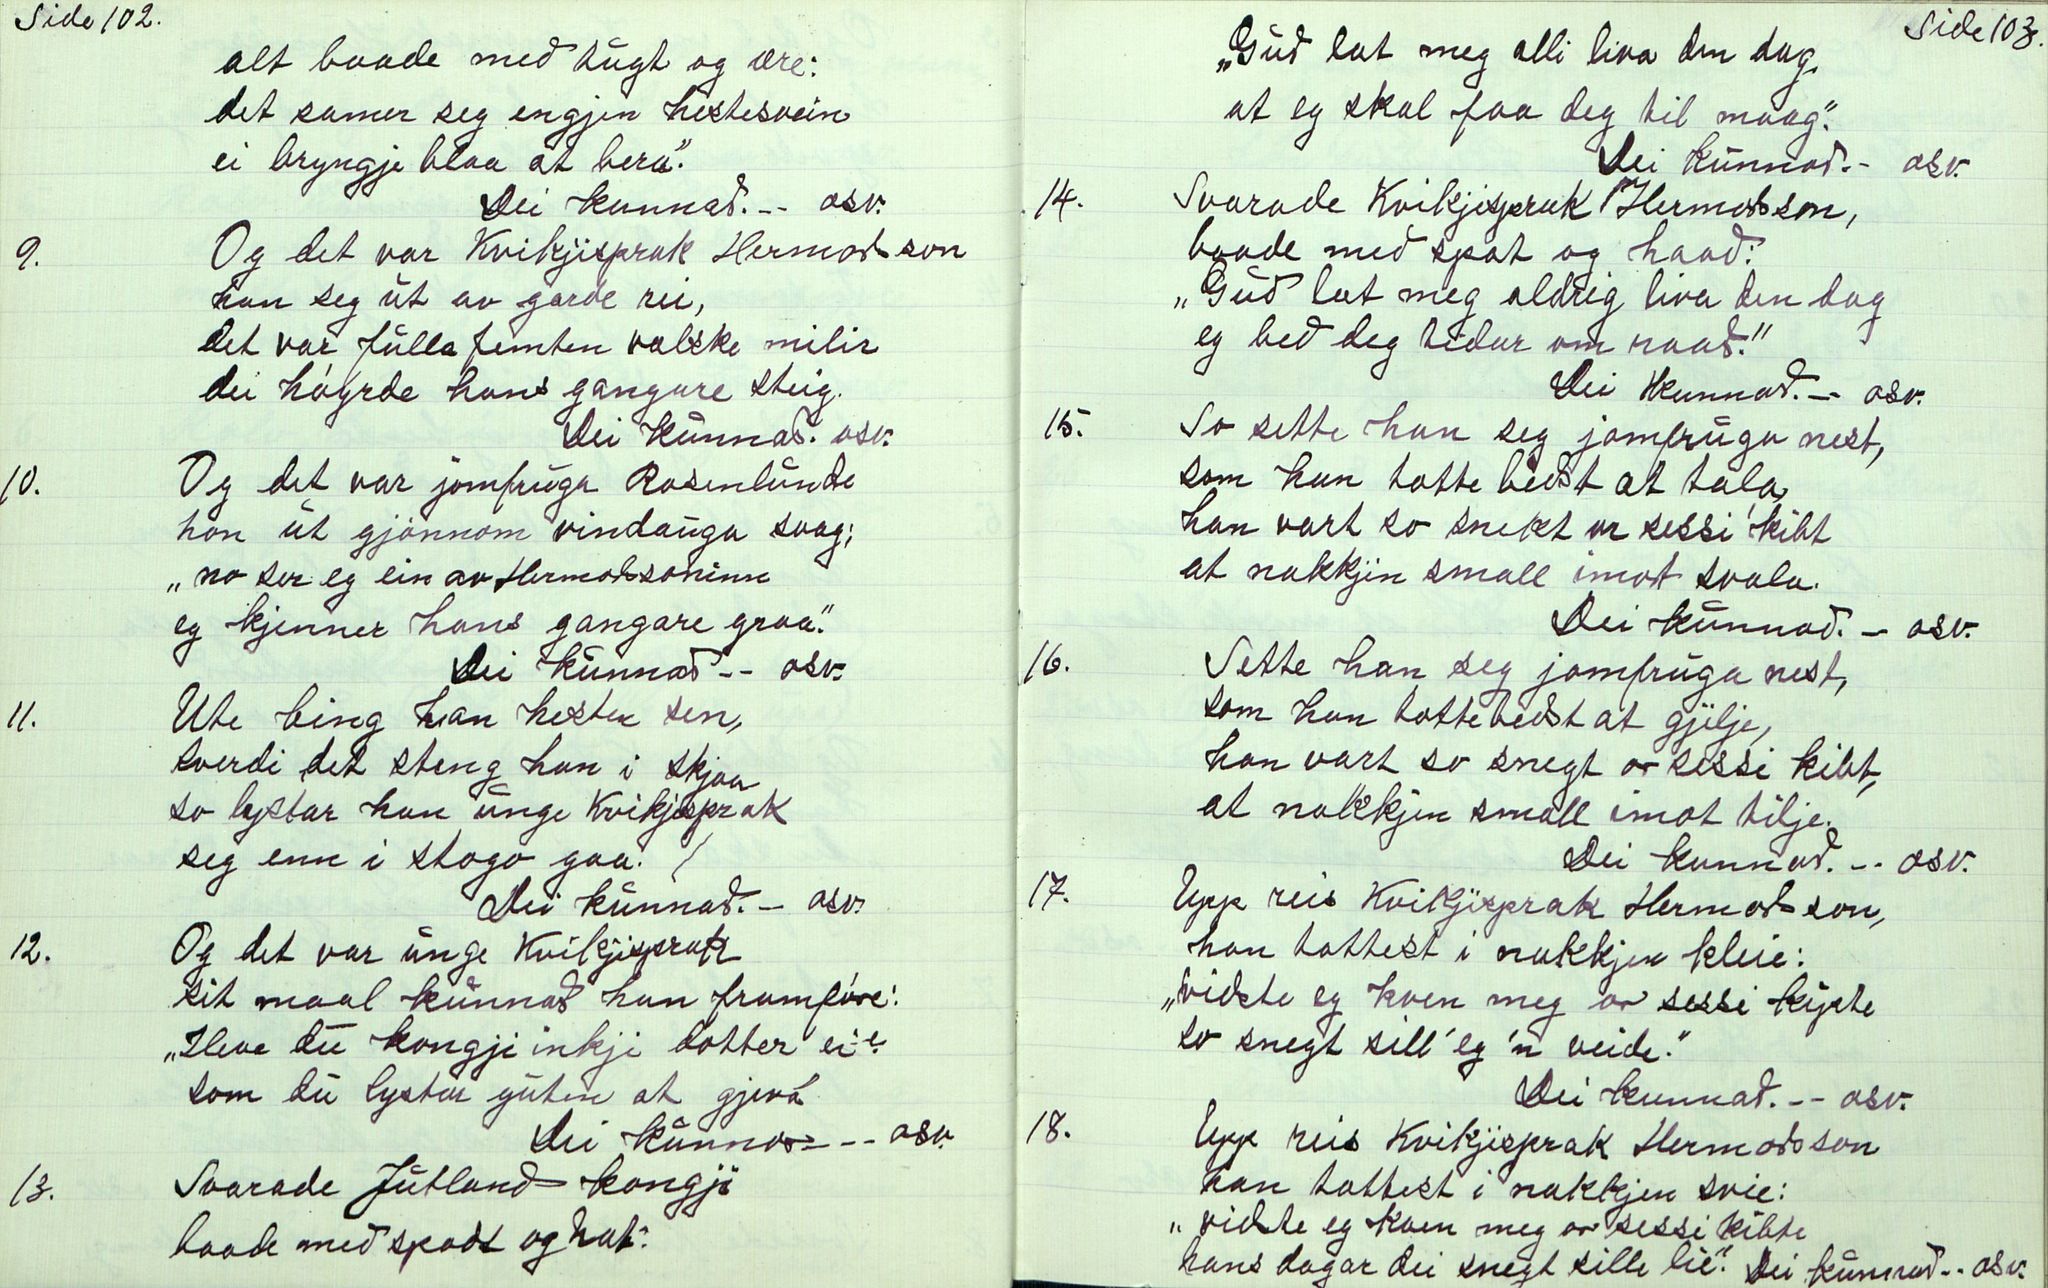 Side 102.
alt baade med túgt og ære:
det samer seg engjen hestesvein
ei bryngje blaa at bera".
Dei kunnad. -- osv.
9. Og det var Kvikjisprak Hermodson
han seg út av garde rei,
det var fúlla femten valske milir
dei høyrde hans gangare steig.
Dei kúnnad. osv.
10. Og det var jomfrúga Rosenlúnde
hon út gjønnom vindaúga saag;
„no ser eg ein av Hermodsoninn
eg kjenner hans gangare graa."
Dei kúnnad -- osv.
11. Ute bing han hesten sen,
sverdi det steng han i skjaa
so lystar han únge Kvikjisprak
seg enn i stogo gaa.
Dei kúnnad. - osv.
12. Og det var únge Kvikjisprak
sit maal kúnnad han framføre:
„Heve dú kongji inkji dotter ei
som dú lystar gúten at gjeva
Dei kúnnad -- osv.
13. Svarade Jútland kongji
baade med spodt og hat:
Side 103.
„Gúd lat meg alli liva den dag,
at eg skal faa deg til maag".
Dei kúnnad. - osv.
14. Svarade Kvikjisprak Hermodson,
baade med spot og haad:
„Gúd lat meg aldrig liva den dag
eg bed deg tidar om raad."
Dei kunnad. - osv.
15. So sette han seg jomfrúga nest,
som han totte bedst at tala,
han vart so snekt or sessi kibt
at nakkjin small imot svala.
Dei kúnnad. - osv.
16. Sette han seg jomfrúga nest,
som han totte bedst at gjilje,
han vart so snegt or sessi kibt,
at nakkjen small imot tilje.
Dei kunnad. -- osv.
17. Upp reis Kvikjisprak Hermodson,
han tottest i nakkjen kleie:
„vidste eg kven meg or sessi kipte
so snegt sill' eg 'n veide."
Dei kunnad. -- osv.
18. Upp reis Kvikjisprak Hermodsson
han tottest i nakkjen svie:
„vidste eg kven meg or sessi kibte
hans dagar dei snegt sille lie". Dei kúnnad -- osv.